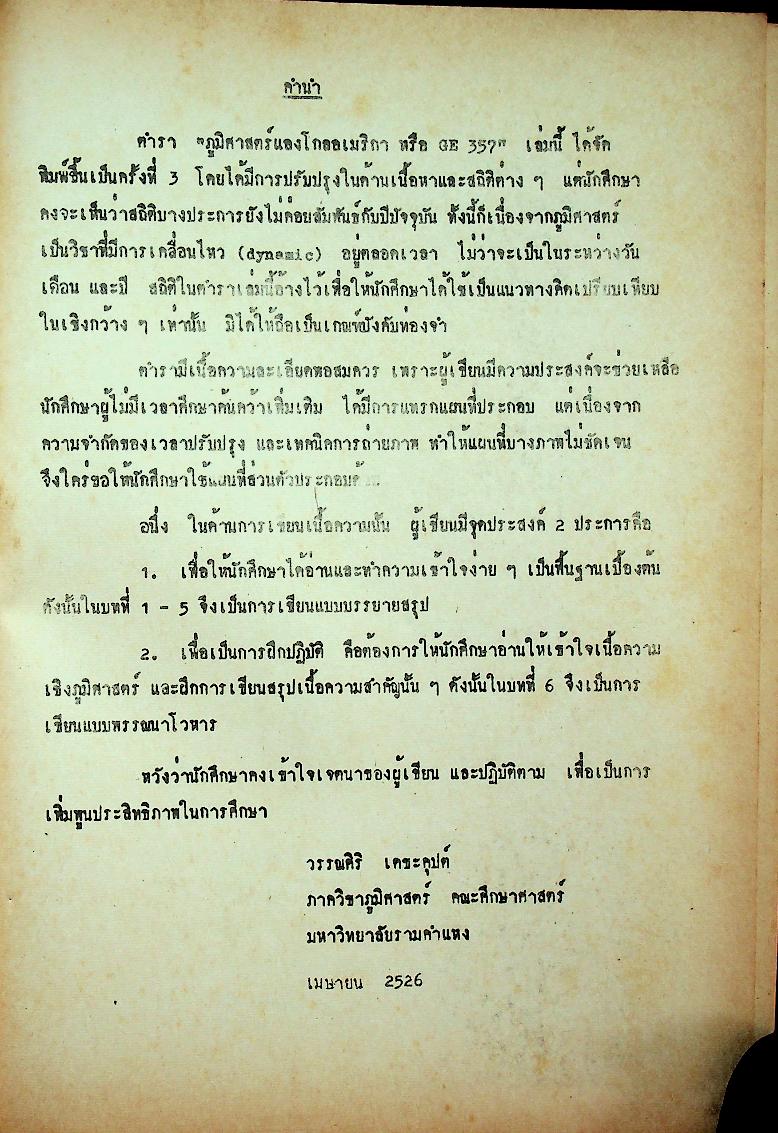 คำนำ
ตำรา "ภูมิศาสตร์แองโกลอเมริกา หรือ GE 357" เล่มนี้ ได้จัด
พิมพ์ขึ้นเป็นครั้งที่ 3 โดยได้มีการปรับปรุงในด้านเนื้อหาและสถิติต่าง ๆ แต่นักศึกษา
คงจะเห็นว่าสถิติบางประการยังไม่ค่อยสัมพันธ์กับปีปัจจุบัน ทั้งนี้ก็เนื่องจากภูมิศาสตร์
เป็นวิชาที่มีการเคลื่อนไหว (dynamic) อยู่ตลอดเวลา ไม่ว่าจะเป็นในระหว่างวัน
เดือน และปี สถิติในตำราเล่มนี้อ้างไว้เพื่อให้นักศึกษาได้ใช้เป็นแนวทางคิดเปรียบเทียบ
ในเชิงกว้าง ๆ เท่านั้น มิได้ให้ถือเป็นเกณฑ์บังคับท่องจำ
ตำรามีเนื้อความละเอียดพอสมควร เพราะผู้เขียนมีความประสงค์จะช่วยเหลือ
นักศึกษาผู้ไม่มีเวลาศึกษาค้นคว้าเพิ่มเติม ได้มีการแทรกแผนที่ประกอบ แต่เนื่องจาก
ความจำกัดของเวลาปรับปรุง และเทคนิคการถ่ายภาพ ทำให้แผนที่บางภาพไม่ชัดเจน
จึงใคร่ขอให้นักศึกษาใช้แผนที่ส่วนตัวประกอบด้วย
อนึ่ง ในด้านการเขียนเนื้อความนั้น ผู้เขียนมีจุดประสงค์ 2 ประการคือ
1. เพื่อให้นักศึกษาได้อ่านและทำความเข้าใจง่าย ๆ เป็นพื้นฐานเบื้องต้น
ดังนั้นในบทที่ 1 - 5 จึงเป็นการเขียนแบบบรรยายสรุป
2. เพื่อเป็นการฝึกปฏิบัติ คือต้องการให้นักศึกษาอ่านให้เข้าใจเนื้อความ
เชิงภูมิศาสตร์ และฝึกการเขียนสรุปเนื้อความสำคัญนั้น ๆ ดังนั้นในบทที่ 6 จึงเป็นการ
เขียนแบบพรรณนาโวหาร
หวังว่านักศึกษาคงเข้าใจเจตนาของผู้เขียน และปฏิบัติตาม เพื่อเป็นการ
เพิ่มพูนประสิทธิภาพในการศึกษา
วรรณศิริ เดชะคุปต์
ภาควิชาภูมิศาสตร์ คณะศึกษาศาสตร์
มหาวิทยาลัยรามคำแหง
เมษายน 2526